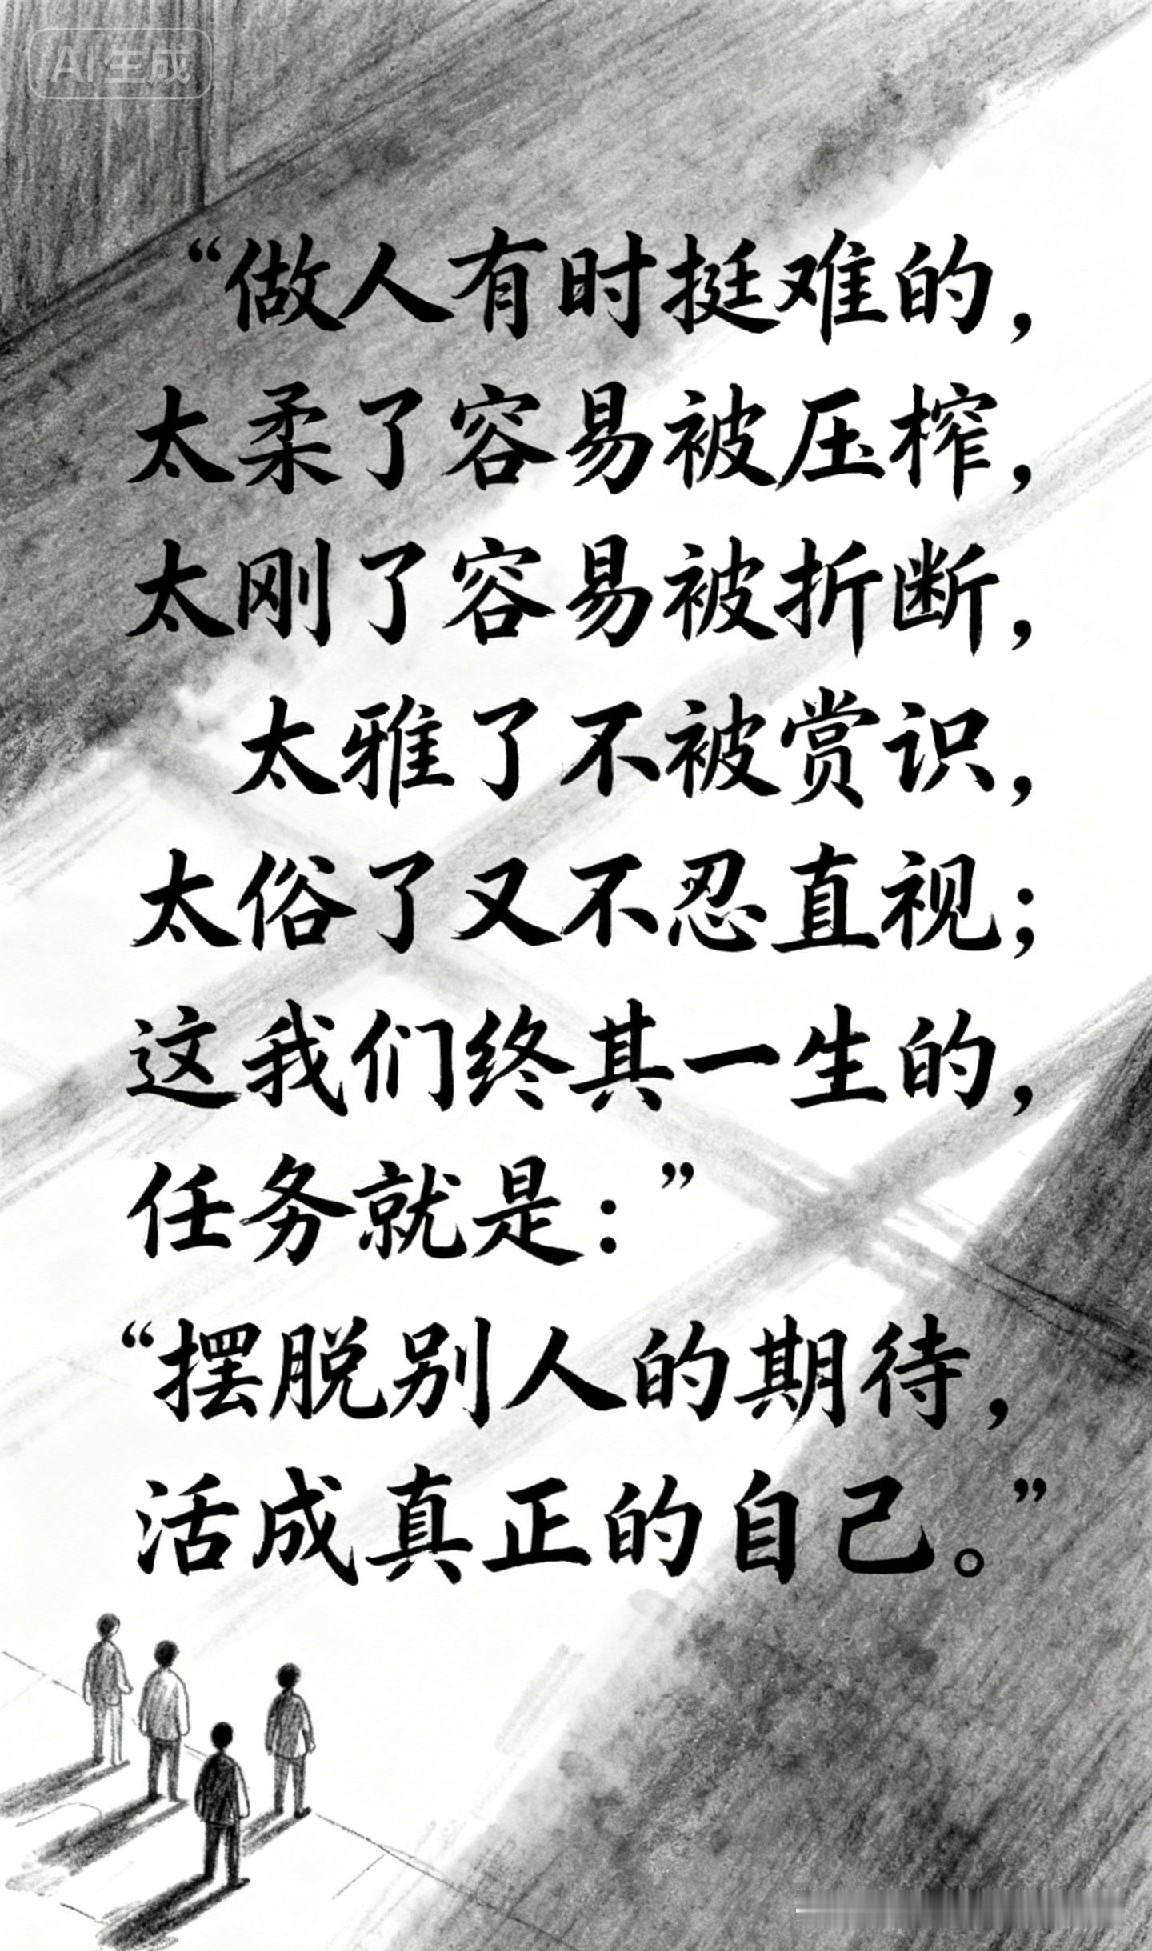 AI生成
“做人有时挺难的，
太柔了容易被压榨，
太刚了容易被折断，
太雅了不被赏识，
太俗了又不忍直视；
这我们终其一生的，
任务就是：”
“摆脱别人的期待，
活成真正的自己。”